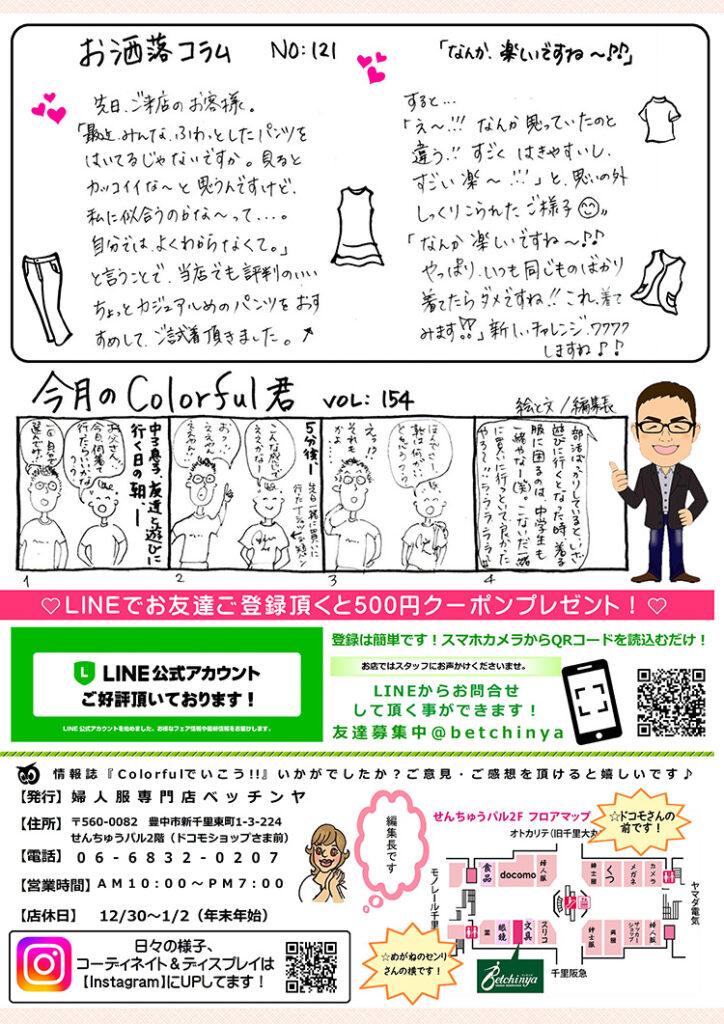 お洒落コラム NO:121
「なんか、楽しいですね〜!!」
先日、ご来店のお客様。
「最近、みんな、ふわっとしたパンツを
はいてるじゃないですか。見ると
カッコイイな〜と思うんですけど、
私に似合うのかな〜って…。
自分では、よくわからなくて。」
と言うことで、当店でも評判のいい
ちょっとカジュアルめのパンツをおす
すめして、ご試着頂きました。
すると…
「え〜!!! なんか思っていたのと
違う!! すごく はきやすいし、
すごい楽〜!!!」と、思いの外
しっくりこられたご様子
「なんか 楽しいですね〜!!
やっぱり、いつも同じものばかり
着てたらダメですね!! これ、着て
みます!!」新しいチャレンジ、ワクワク
しますね♪♪
今月のColorful君 VOL: 154
絵と文/編集長
中3息子、友達と遊びに
行く日の朝ー
お父さん、
今日、何着て
行たらいいかな
???
1
5分後ー
先日一緒に買いに
行たTシャツと短パン
こんな感じで
ええかな!
おっ、
ええやん!
2
えっ!?
それも
かよ…
3
部活ばっかりしていると、いざ
遊びに行くとなった時、着る
服に困るのは、中学生も
一緒やな!(笑)。こないだ一緒
に買いに行っといて良かった
やろ〜!!ラララララ
4
♡LINEでお友達ご登録頂くと500円クーポンプレゼント！♡
LINE公式アカウント
ご好評頂いております！
LINE公式アカウントを始めました。お得なフェア情報や最新情報をお届けします。
登録は簡単です！スマホカメラからQRコードを読込むだけ！
お店ではスタッフにお声かけくださいませ。
LINEからお問合せ
して頂く事ができます！
友達募集中@betchinya
情報誌『Colorfulでいこう!!』いかがでしたか？ご意見・ご感想を頂けると嬉しいです♪
【発行】婦人服専門店ベッチンヤ
【住所】 〒560-0082 豊中市新千里東町1-3-224
せんちゅうパル2階（ドコモショップさま前）
【電話】 06-6832-0207
【営業時間】AM10:00～PM7:00
【店休日】 12/30～1/2（年末年始）
日々の様子、
コーディネイト＆ディスプレイは
【Instagram】にUPしてます！
編集長です
せんちゅうパル2F フロアマップ
オトカリテ（旧千里大丸
☆ドコモさんの
前です！
モノレール千里
食品
docomo
婦人服
紳士服
くつ
メガネ
カメラ
ヤマダ電気
薬
眼鏡
文具
スリコ
紳士服
呉服
サッカーショップ
婦人服
千里阪急
☆めがねのセンリ
さんの横です！
Betchinya